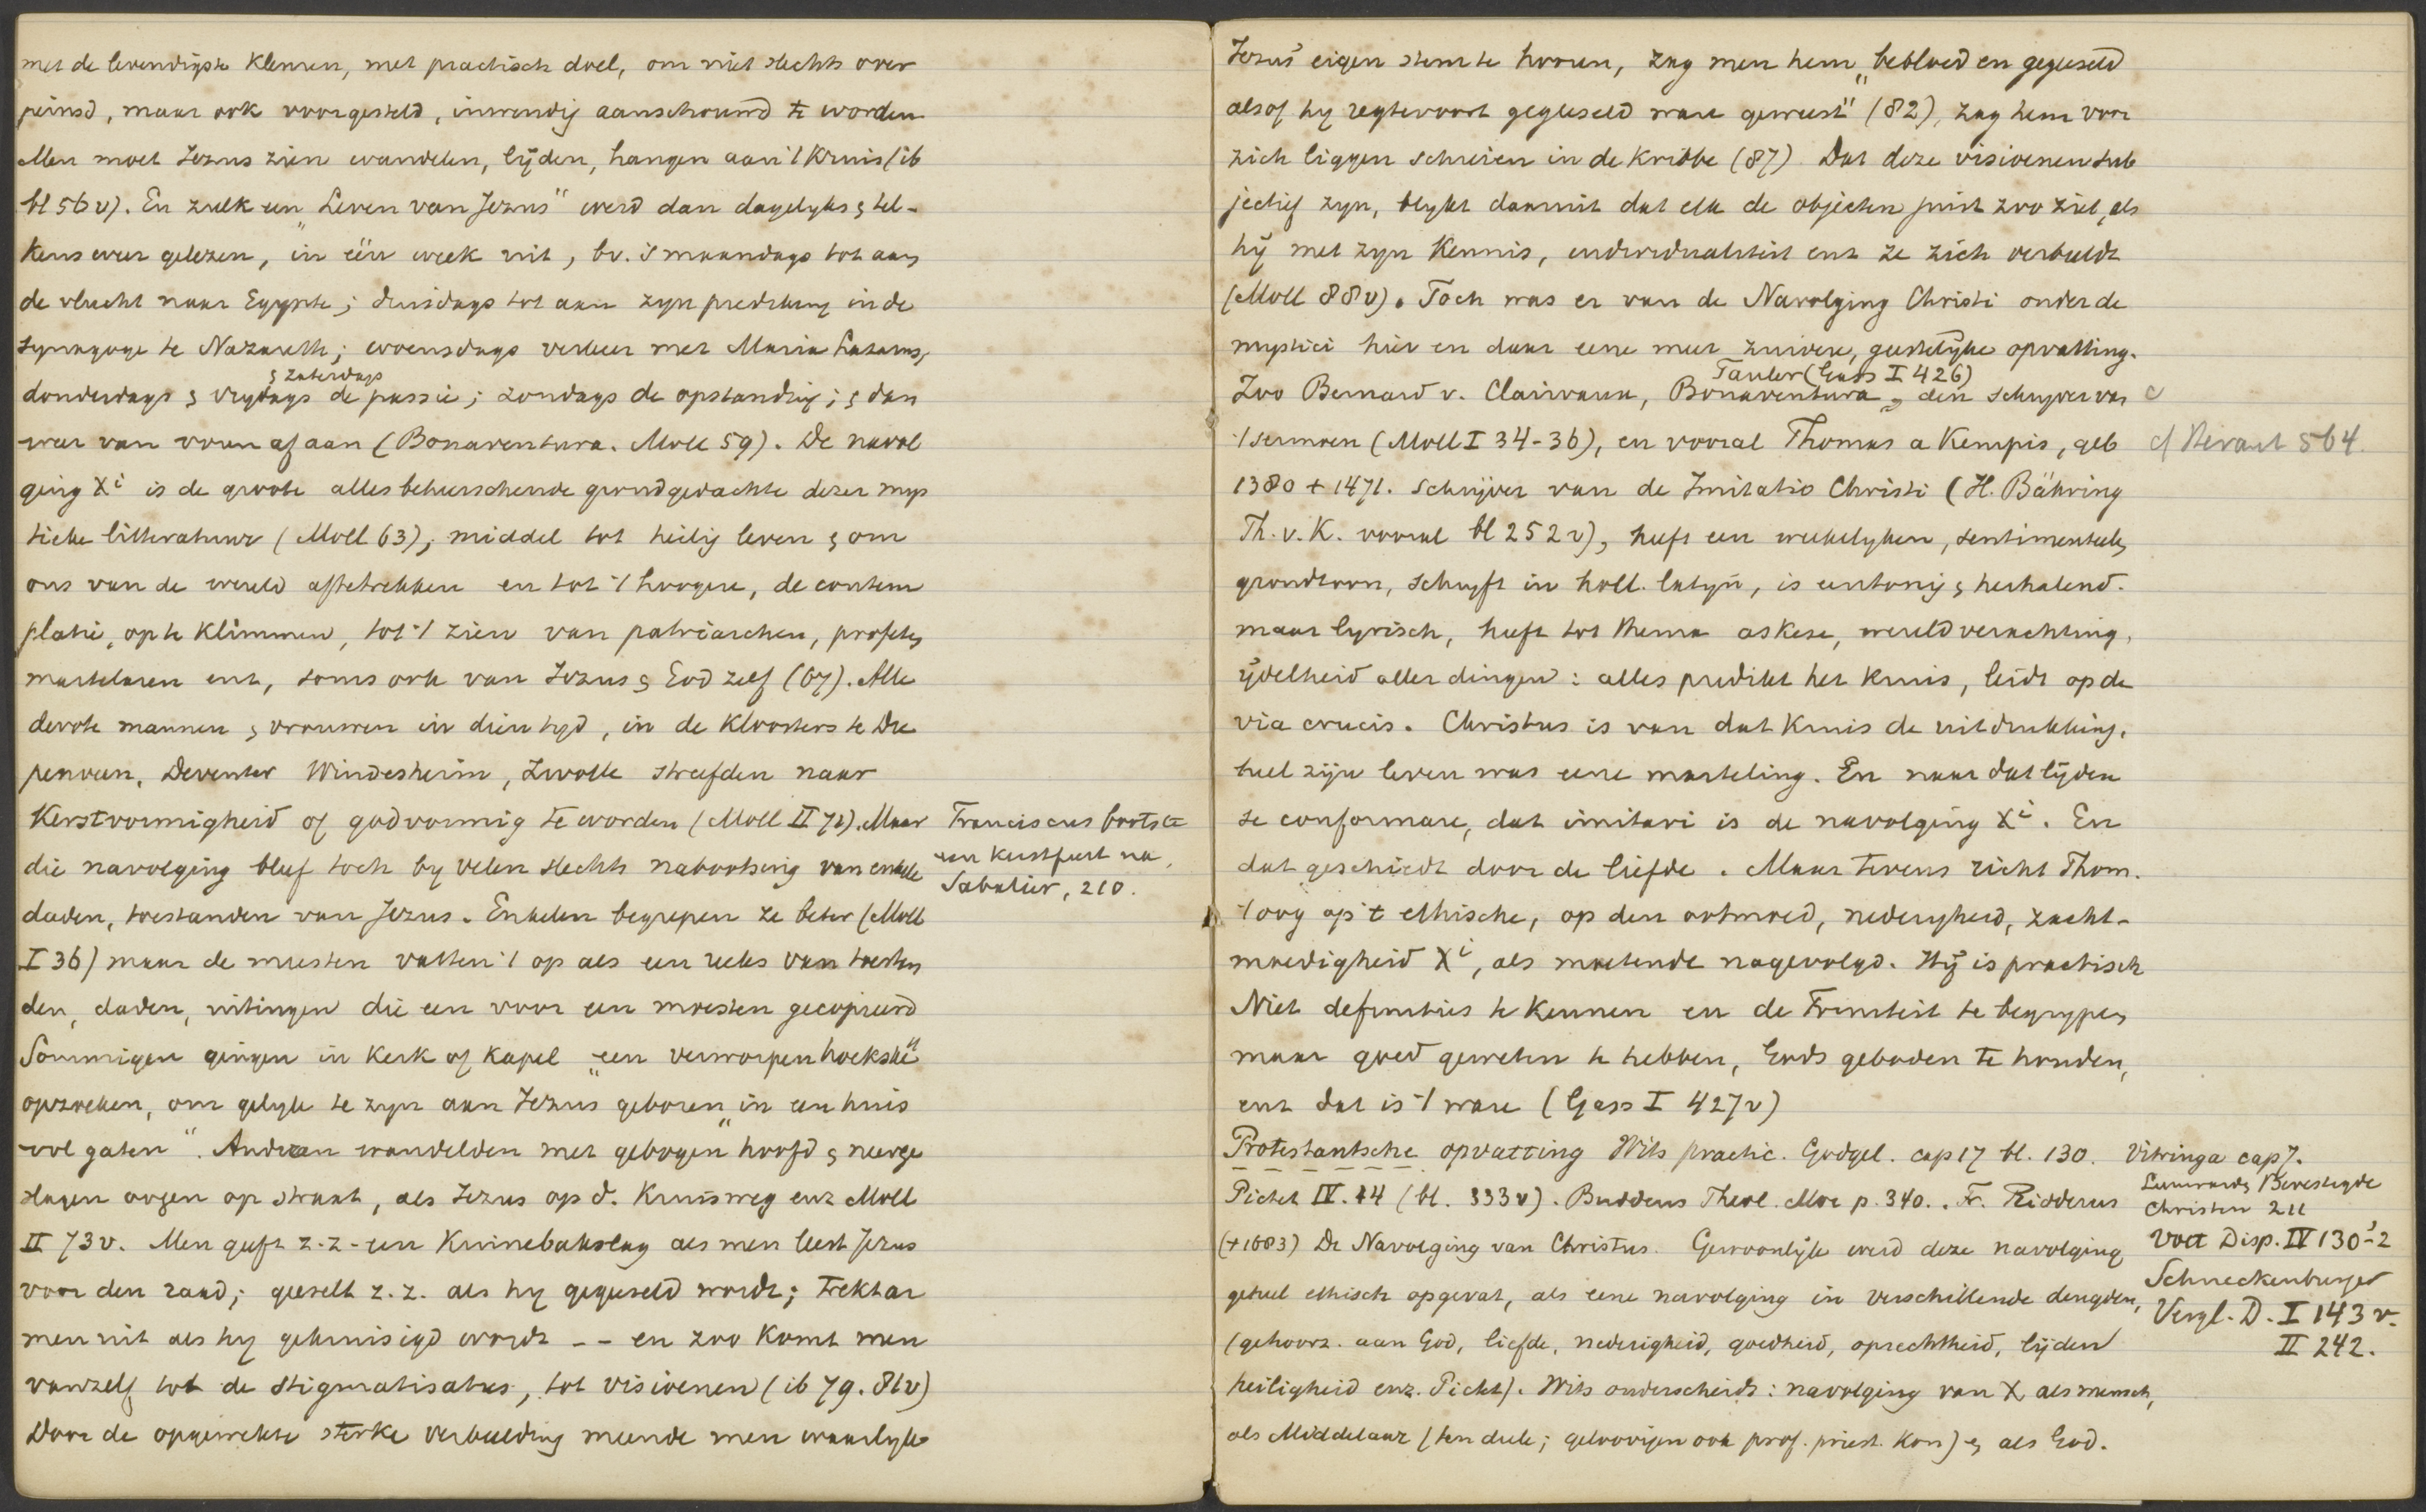 met de levendigste kleuren, met practisch doel, om niet slechts over
peinsd, maar ook voorgesteld, inwendig aanschouwd te worden
Men moet Jezus zien wandelen, lijden, hangen aan 't kruis (ib
bl 56 v). En zulk een „Leven van Jezus" werd dan dagelyks & tel-
kens weer gelezen, in één week uit, bv. 's maandags tot aan
de vlucht naar Egypte; dinsdags tot aan zyn prediking in de
synagoge te Nazareth; woensdags verkeer met Maria Lazarus,
donderdags & vrydags & zaterdags de passie; zondags de opstanding; & dan
weer van voren af aan (Bonaventura. Moll 59). De navol
ging Xi is de groote alles beheerschende grondgedachte dezer mys
tieke litteratuur (Moll 63), middel tot heilig leven & om
ons van de wereld aftetrekken en tot 't hoogere, de contem
platie, op te klimmen, tot 't zien van patriarchen, profeten
martelaren enz, soms ook van Jezus & God zelf (67). Alle
devote mannen & vrouwen in dien tyd, in de kloosters te Die
penveen, Deventer Windesheim, Zwolle streefden naar
Kerstvormigheid of godvormig te worden (Moll II 72). Maar
die navolging bleef toch by velen slechts nabootsing van enkele
daden, toestanden van Jezus. Enkelen begrepen ze beter (Moll
I 36) maar de meesten vatten 't op als een reeks van toestan
den, daden, uitingen die een voor een moesten gecopieerd
Sommigen gingen in kerk of kapel „een verworpen hoekske"
opzoeken, om gelyk te zyn aan Jezus geboren „in een huis
vol gaten". Anderen wandelden met gebogen hoofd & neerge
slagen oogen op straat, als Jezus op d. Kruisweg enz Moll
II 73 v. Men geeft z.z. een kinnebakslag als men leest Jezus
voor den raad; geeselt z.z. als hy gegeeseld wordt; trekt zr
men uit als hy gekruisigd wordt -- en zoo komt men
vanzelf tot de stigmatisaties, tot visioenen (ib 79. 81v)
Door de opgewekte sterke verbeelding meende men waarlyk
Franciscus bootste
een kerstfeest na.
Sabatier, 210.
Jezus' eigen stem te hooren, zag men hem „bebloed en gegeeseld
alsof hy regtevoort gegheseld ware geweest" (82), zag hem voor
zich liggen schreien in de kribbe (87) Dat deze visioenen sub
jectief zyn, blykt daaruit dat elk de objecten juist zoo ziet, als
hij met zyn kennis, individualiteit enz ze zich verbeeldt
(Moll 88v). Toch was er van de Navolging Christi onder de
mystici hier en daar eene meer zuivere, geestelijke opvatting.
Zoo Bernard v. Clairvaux, Bonaventura, Tauler (Gass I 426) den schryver van
't sermoen (Moll I 34-36), en vooral Thomas a Kempis, geb
1380 + 1471. Schrijver van de Imitatio Christi (H. Bähring
Th. v. K. vooral bl 252 v), heeft een weekelyken, sentimenteelen
grondtoon, schryft in holl. latyn, is eentonig & herhalend.
maar lyrisch, heeft tot thema askese, wereldverachting,
ijdelheid aller dingen: alles predikt het kruis, leidt op de
via crucis. Christus is van dat kruis de uitdrukking,
heel zijn leven was eene marteling. En naar dat lijden
se conformare, dat imitari is de navolging Xi. En
dat geschiedt door de liefde. Maar tevens richt Thom.
't oog op 't ethische, op den ootmoed, nederigheid, zacht-
moedigheid Xi, als moetende nagevolgd. Hij is practisch
Niet definities te kennen en de Triniteit te begrypen
maar goed geweten te hebben, Gods geboden te houden,
enz dat is 't ware (Gass I 427v)
Protestantsche opvatting Wits practic. Godgel. cap 17 bl. 130.
Pictet IV. 14 (bl. 333v). Buddeus Theol. Mor p. 340. Fr. Ridderus
(+1683) De Navolging van Christus. Gewoonlijk werd deze navolging
geheel ethisch opgevat, als eene navolging in verschillende deugden,
(gehoorz. aan God, liefde, nederigheid, goedheid, oprechtheid, lijden
heiligheid enz. Pictet). Wits onderscheidt: navolging van X als mensch,
als Middelaar (ten deele; geloovigen ook prof. priest. kon) & als God.
cf Heraut 564.
Vitringa cap 7.
Bevestigde
Christen 211
Voet Disp. IV 130-2
Schneckenburger
Vergl. D. I 143 v.
II 242.